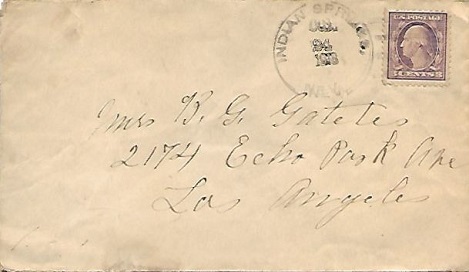 INDIAN SPRINGS,
DEC.
24
NEV.
U.S. POSTAGE
3 CENTS 3
Mrs B. G.
2174 Echo Park Ave
Los Angeles